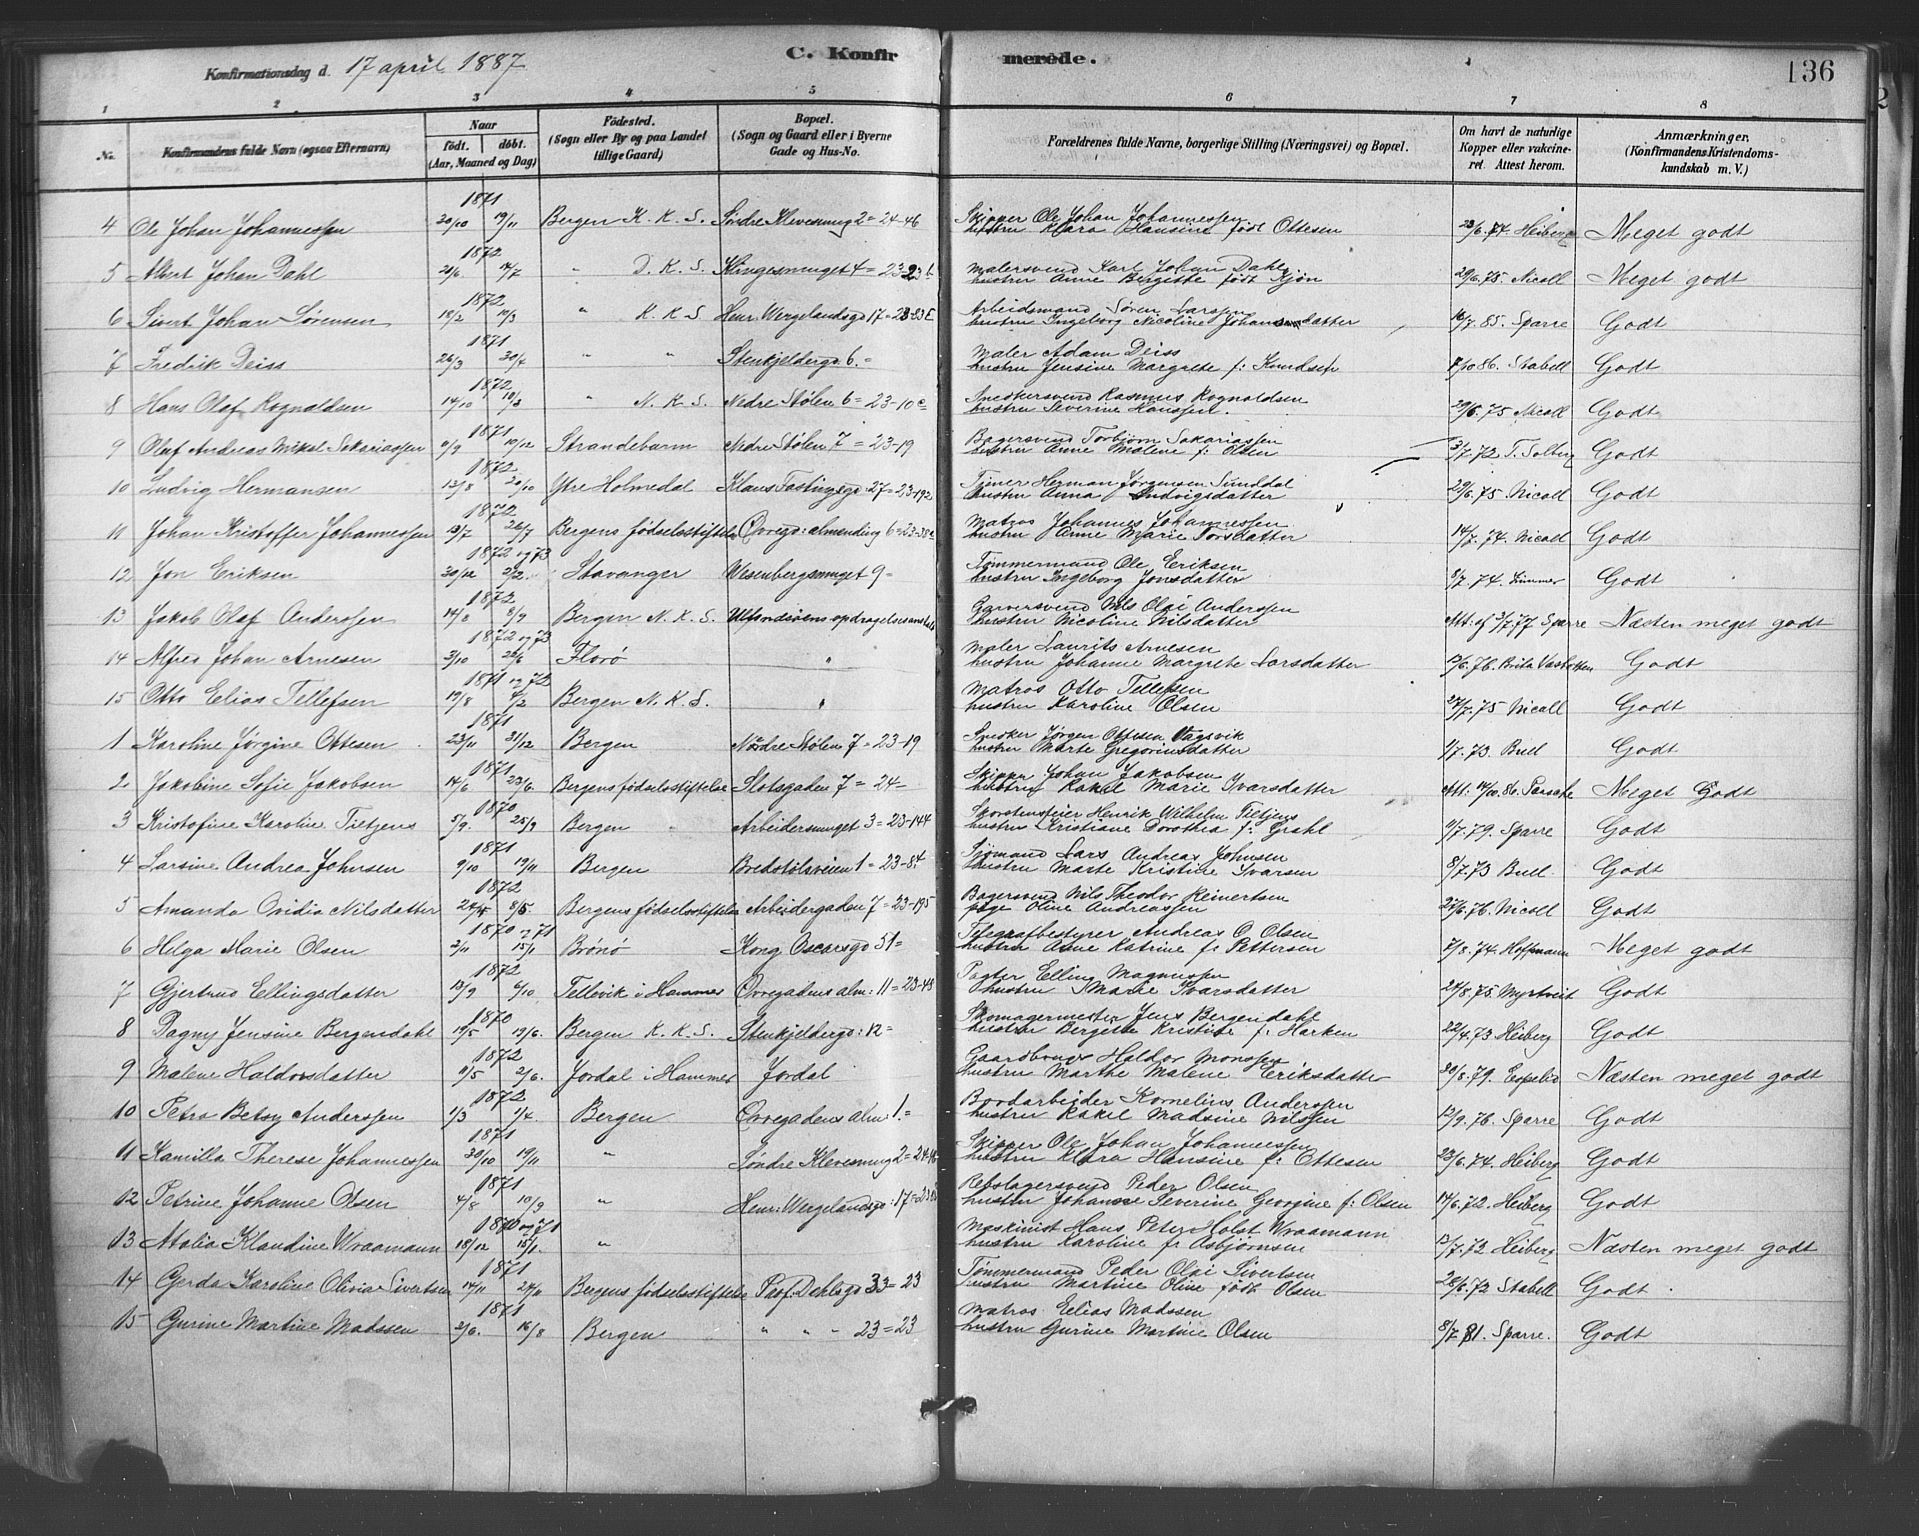 136
C. Konfirmerede.
Konfirmationsdag d. 17 april 1887
1 2 3 4 5 6 7 8
No. Konfirmandens fulde Navn (ogsaa Efternavn) Naar født. døbt. (Aar, Maaned og Dag) Fødested. (Sogn eller By og paa Landet tillige Gaard) Bopæl. (Sogn og Gaard eller i Byerne Gade og Hus-No. Forældrenes fulde Navne, borgerlige Stilling (Næringsvei) og Bopæl. Om havt de naturlige Kopper eller vakcineret. Attest herom. Anmærkninger, (Konfirmandens Kristendomskundskab m. V.)
4 Ole Johan Johannessen 1871 30/10 19/11 Bergen K. K. S. Søndre Klevesmug 2=24-46 Skipper Ole Johan Johannessen hustru Klara Hansine født Ottesen 23/6.74 Heiberg Meget godt
5 Albert Johan Dahl 1872 21/6 14/7 " D. K. S. Klingesmuget 4=23 Malersvend Karl Johan Dahl hustru Anne Bergitte født Kjøn 29/6.75 Nicoll Meget godt
6 Sivert Johan Sørensen 1872 18/2 10/3 " K. K. S Henr. Wergelandsgd 17= Arbeidsmand Søren Larssen hustru Ingeborg Nicoline Johansdatter 16/7.85. Sparre Godt
7 Fredrik Deiss 1871 26/3 30/4 " " Stenkjelderg. 6.= Maler Adam Deiss hustru Jensine Margrete f: Knudsen 7/10 86. Stabell Godt
8 Hans Olaf Rognaldsen 1872 14/10 10/3 " N. K. S. Nedre Stølen 6=23-10c Snekkersvend Rasmus Rognaldsen hustru Severine Hanssen. 29/6.75 Nicoll Godt
9 Olaf Andreas Mikal Sakariassen 1871 9/9 10/12 Strandebarm Nedre Stølen 7=23-19 Bagersvend Torbjørn Sakariassen hustru Anne Malene f. Olsen 3/7.72 T. Solberg Godt
10 Ludvig Hermansen 1872 13/8 20/10 Ytre Holmedal Klaus Fastingsgd. 27=23-192 Herman Jørgensen Sunddal hustru Anna Ludvigsdatter 29/6.75 Nicoll Godt
11 Johan Kristoffer Johannessen 1872 19/7 26/7 Bergens fødselsstiftelse Øvregd: almending 6=23-38 Matros Johannes Johannessen hustru Anne Marie Torsdatter 14/7.74. Nicoll Godt
12 Jon Eriksen 1872 og 73 30/12 2/2. Stavanger Wesenbergsmuget 9= Tømmermand Ole Eriksen hustru Ingeborg Jonsdatter 9/7.74. Godt
13 Jakob Olaf Anderssen 1872 14/8 8/9 Bergen N. K. S. Ulfsnesøens opdragelsesanstalt Garversvend Nils Olai Anderssen hustru Nicoline Nilsdatter Att. af 3/7.77 Sparre Næsten meget godt
14 Alfred Johan Arnesen 1872 og 73 3/10 26/6 Florø " Maler Laurits Arnesen hustru Johanne Margrete Larsdatter 13/6.76. Godt
15 Otto Elias Tellefsen 1871 og 72 19/8 4/2 Bergen N. K. S. " Matros Otto Tellefsen hustru Karoline Olsen 27/7.75 Nicoll Godt
1 Karoline Jørgine Ottesen 1871 23/11 31/12 Bergen Nedre Stølen 7=23-19 Snedker Jørgen Ottesen Vagsvik hustru Marte Gregoriusdatter 1/7.73. Bull Godt
2 Jakobine Sofie Jakobsen 1871 14/6 23/6 Bergens fødselsstiftelse Slotsgaden 7=24= Skipper Johan Jakobsen hustru Rakel Marie Ivarsdatter Att: 14/10.86. Meget Godt
3 Kristofine Karoline Tietjens 1870 5/9. 25/9 Bergen Arbeidersmuget 3=23-144 Skorstensfeier Henrik Wilhelm Tietjens hustru Kristiane Dorothea f: Grahl 9/7.79. Sparre Godt
4 Larsine Andrea Johnsen 1871 9/10 19/11 Bergen Bredstølsveien 1=23-84 Sjømand Lars Andreas Johnsen hustru Marte Kristine Ivarsen 8/7.73 Bull Godt
5 Amanda Ovidia Nilsdatter 1872 8/5. Bergens fødselsstiftelse Arbeidergaden 7=23-195 Bagersvend Nils Theodor Reinertsen pige Oline Andreassen 27/6.76. Nicoll Godt
6 Helga Marie Olsen 1870 og 71 2/11 15/1 Brønø Kong Oscarsgd 51= Telegrafbestyrer Andreas O. Olsen hustru Anne Katrine f: Pettersen 7/8.74. Hoffmann Meget godt
7 Gjertrud Ellingsdatter 1872 13/9 6/10 Tellevik i Hammer Øvregadens alm: 11=23-48 Pagter Elling Magnussen hustru Marie Ivarsdatter 24/8.75. Myrtveit Godt
8 Dagny Jensine Bergendahl 1870 19/5 19/6. Bergen K. K. S. Stenkjelderg: 12= Skomagermester Jens Bergendahl hustru Bergitte Kristine f: Harken 22/4.73 Heiberg Godt
9 Malene Haldorsdatter 1872 9/5 2/6. Jordal i Hammer Jordal Gaardbruger Haldor Monssen hustru Marthe Malene Eriksdatter 30/8.79. Næsten meget godt
10 Petra Betsy Anderssen 1872 1/3 1/4 Bergen Øvregadens alm: 1.= Bordarbeider Kornelius Anderssen hustru Rakel Madsine Nilssen 12/9.76. Sparre Godt
11 Kamilla Therese Johannessen 1871 30/10 19/11 " Søndre Klevesmug 2=24-46 Skipper Ole Johan Johannessen hustru Klara Hansine f: Ottesen 23/6.74. Heiberg Godt
12 Petrine Johanne Olsen 1871 4/8 10/9 " Henr: Wergelandsgd: 17= Rebslagersvend Peder Olsen hustru Johanne Severine Georgine f: Olsen 14/6.72. Heiberg Godt
13 Atalia Klaudine Wraamann 1870 og 71 18/12 15/1. " Maskinist Hans Peter Holst Wraamann hustru Karoline f: Asbjørnsen 13/7.72 Heiberg Næsten meget godt
14 Gerda Karoline Olivia Sivertsen 1871 14/11 24/11 Bergens fødselsstiftelse Prof. Dahlsgd 33=23 Tømmermand Peder Olai Sivertsen hustru Martine Oline født Olsen 28/6.72 Stabell Godt.
15 Gurine Martine Madssen 1871 2/6. 16/8 Bergen " " - 23=23 Matros Elias Madssen hustru Gurine Martine Olsen 8/7 81. Sparre. Godt